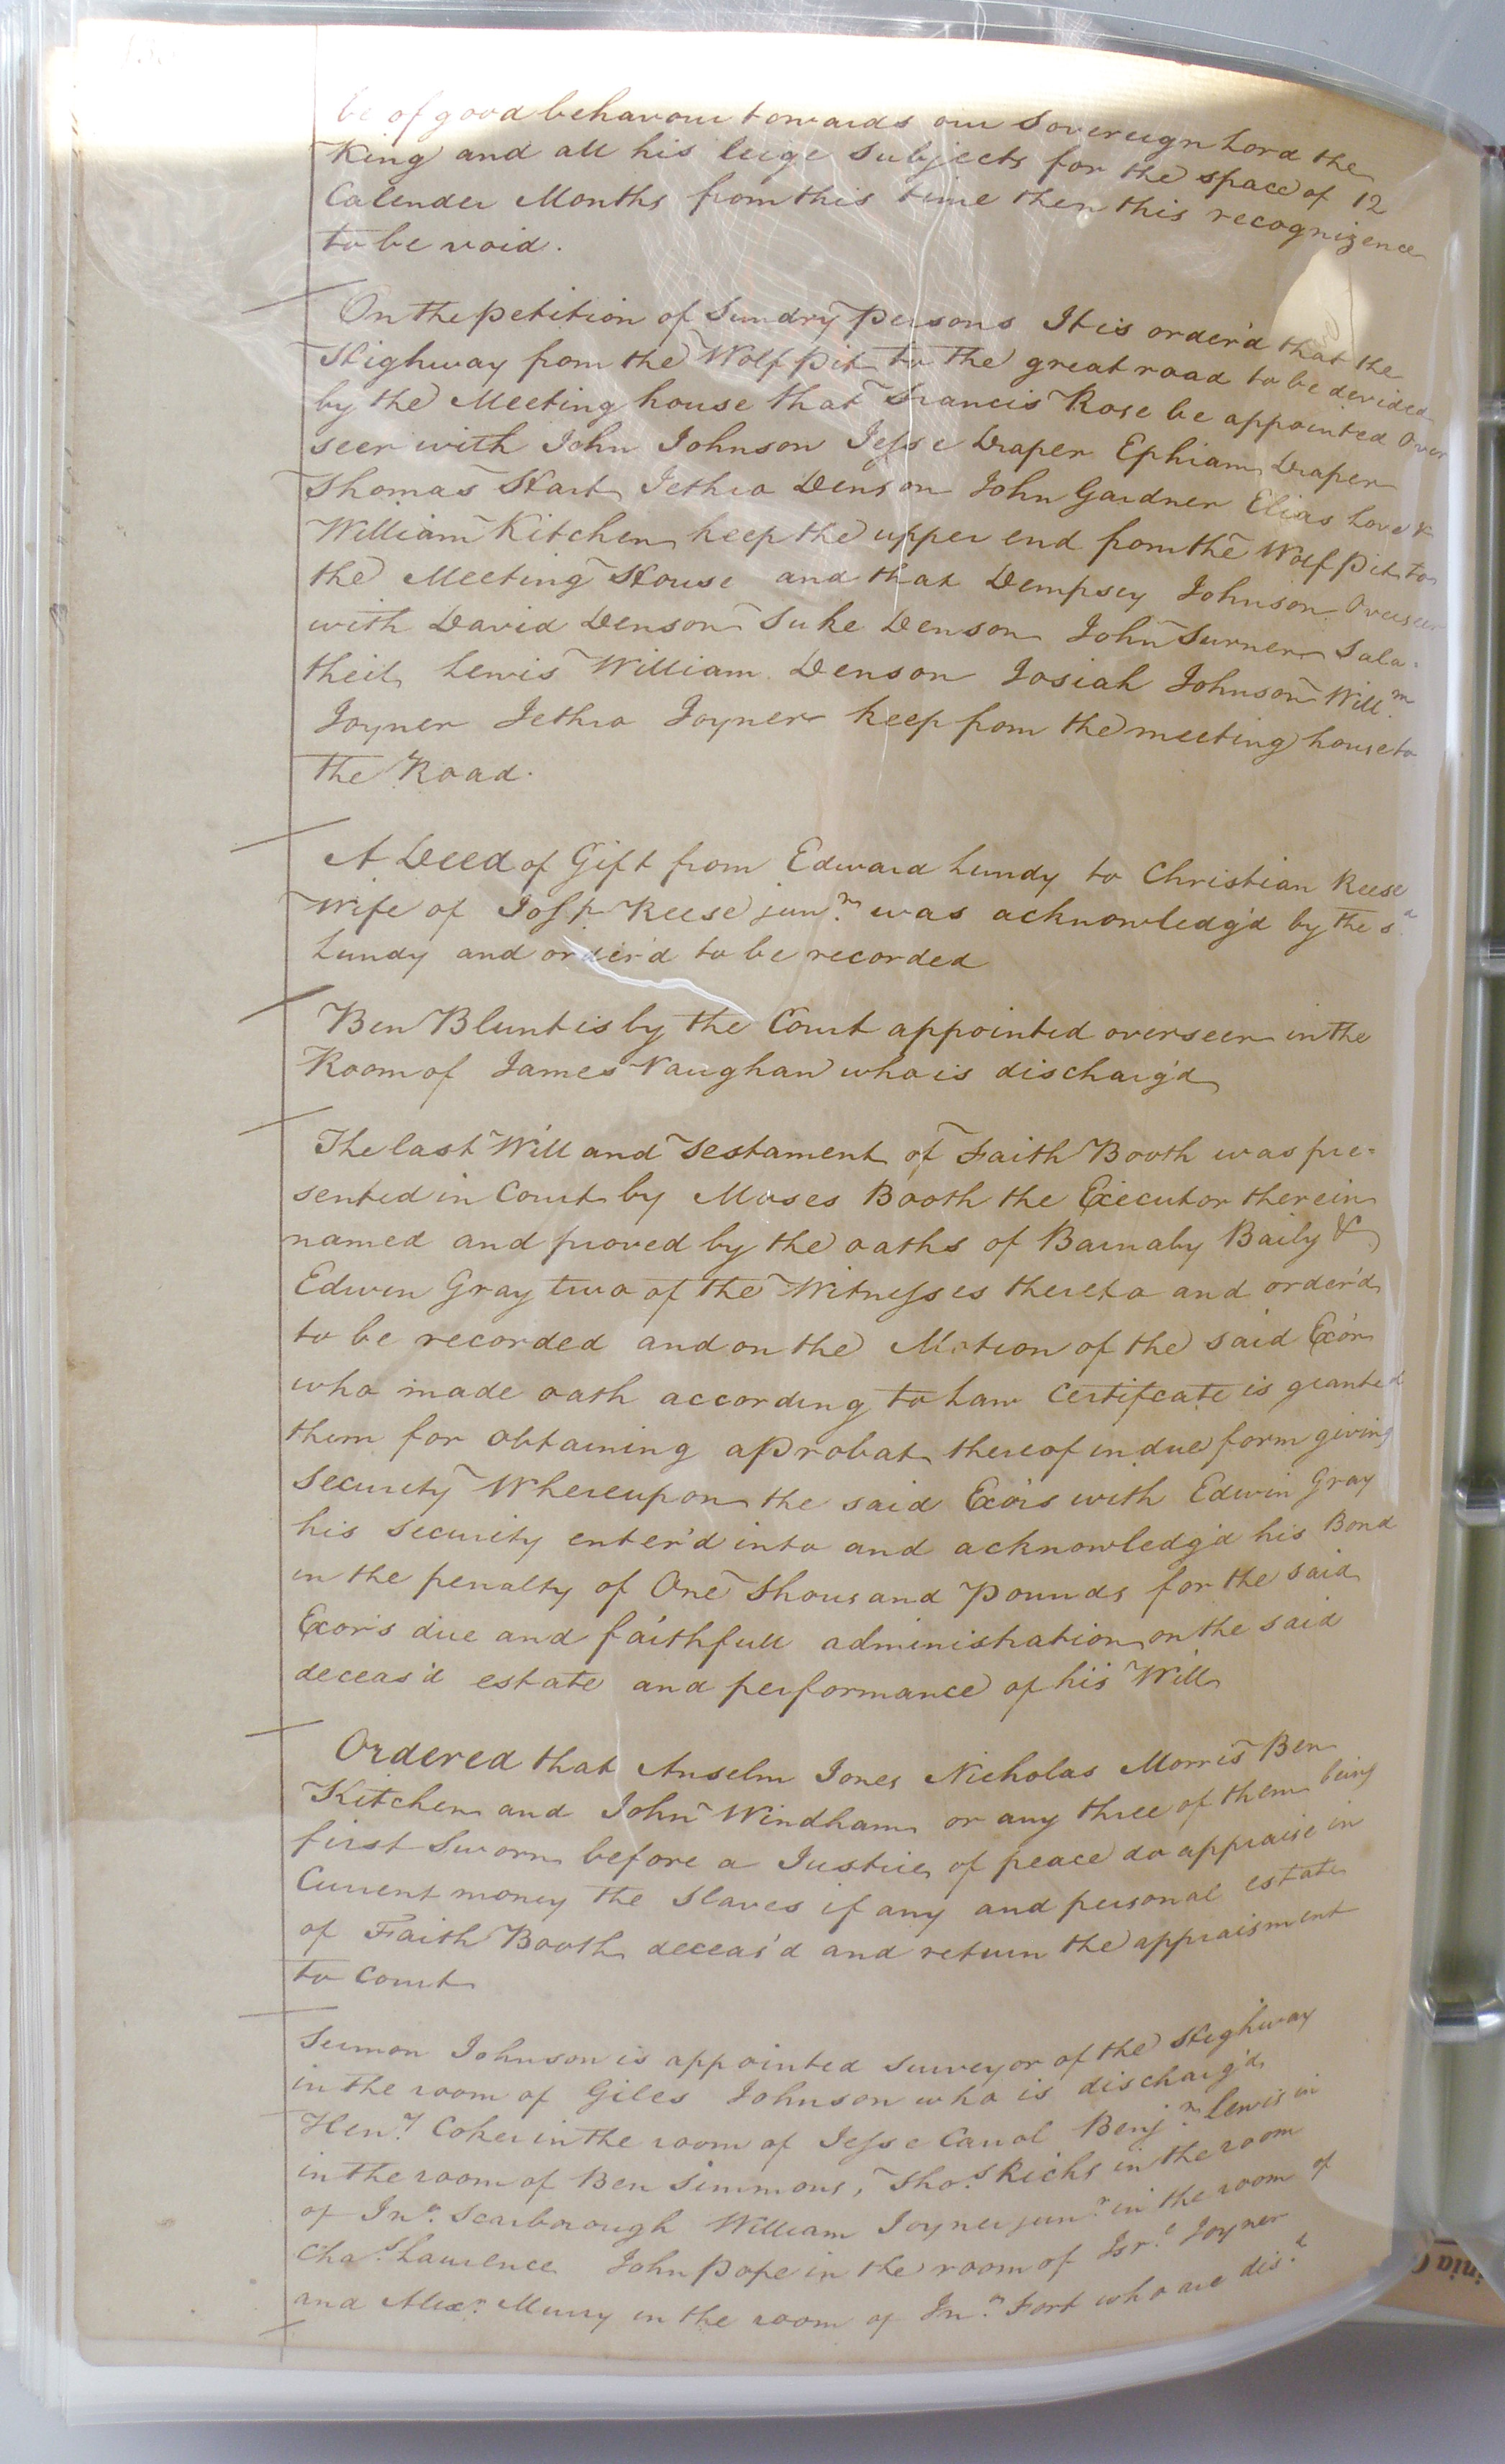 be of good behavour towards our Sovereign Lord the
King and all his leige Subjects for the space of 12
Calender Months from this time then this recognizence
to be void.
On the petition of Sundry Persons It is order'd that the
Highway from the Wolf Pit to the great road to be devided
by the Meeting house that Francis Rose be appointed Over
seer with John Johnson Jesse Draper Ephiam Draper
Thomas Hart Jethro Denson John Gardner Elias Love &
William Kitchen keep the upper end from the Wolf Pit to
the Meeting House and that Dempsey Johnson Overseer
with David Denson Juke Denson John Turner Sala-
theil Lewis William Denson Josiah Johnson Will.m
Joyner Jethro Joyner keep from the meeting house to
the Road.
A Deed of Gift from Edward Lundy to Christian Reese
Wife of Josp Reese jun.r was acknowledg'd by the s.d
Lundy and order'd to be recorded
Ben Blunt is by the Court appointed overseer in the
Room of James Vaughan who is discharg'd
The last Will and Testament of Faith Booth was pre=
sented in Court by Moses Booth the Executor therein
named and proved by the oaths of Barnaby Baily &
Edwin Gray two of the Witnesses thereto and order'd
to be recorded and on the Motion of the said Exo'r
who made oath according to Law Certifcate is granted
them for obtaining a Probat thereof in due form giving
Security Whereupon the said Exo'rs with Edwin Gray
his security enter'd into and acknowledg'd his Bond
in the penalty of One Thousand Pounds for the said
Exor's due and faithfull administration on the said
deceas'd estate and performance of his Will
Ordered that Anselm Jones Nicholas Morris Ben
Kitchen and John Windham or any three of them being
first Sworn before a Justice of peace do appraise in
Current money the Slaves if any and personal estate
of Faith Booth deceas'd and return the appraisment
to Court
Simon Johnson is appointed Surveyor of the Highway
in the room of Giles Johnson who is discharg'd
Hen.y Coker in the room of Jesse Carrol Benj.n Lewis in
in the room of Ben Simmons, Tho.s Ricks in the room
of Jn.o Scarborough William Joyner jun.r in the room of
Cha.s Lawrence John Pope in the room of Isr.l Joyner
and Alex.r Murry in the room of Jn.o Fort who are dis.d